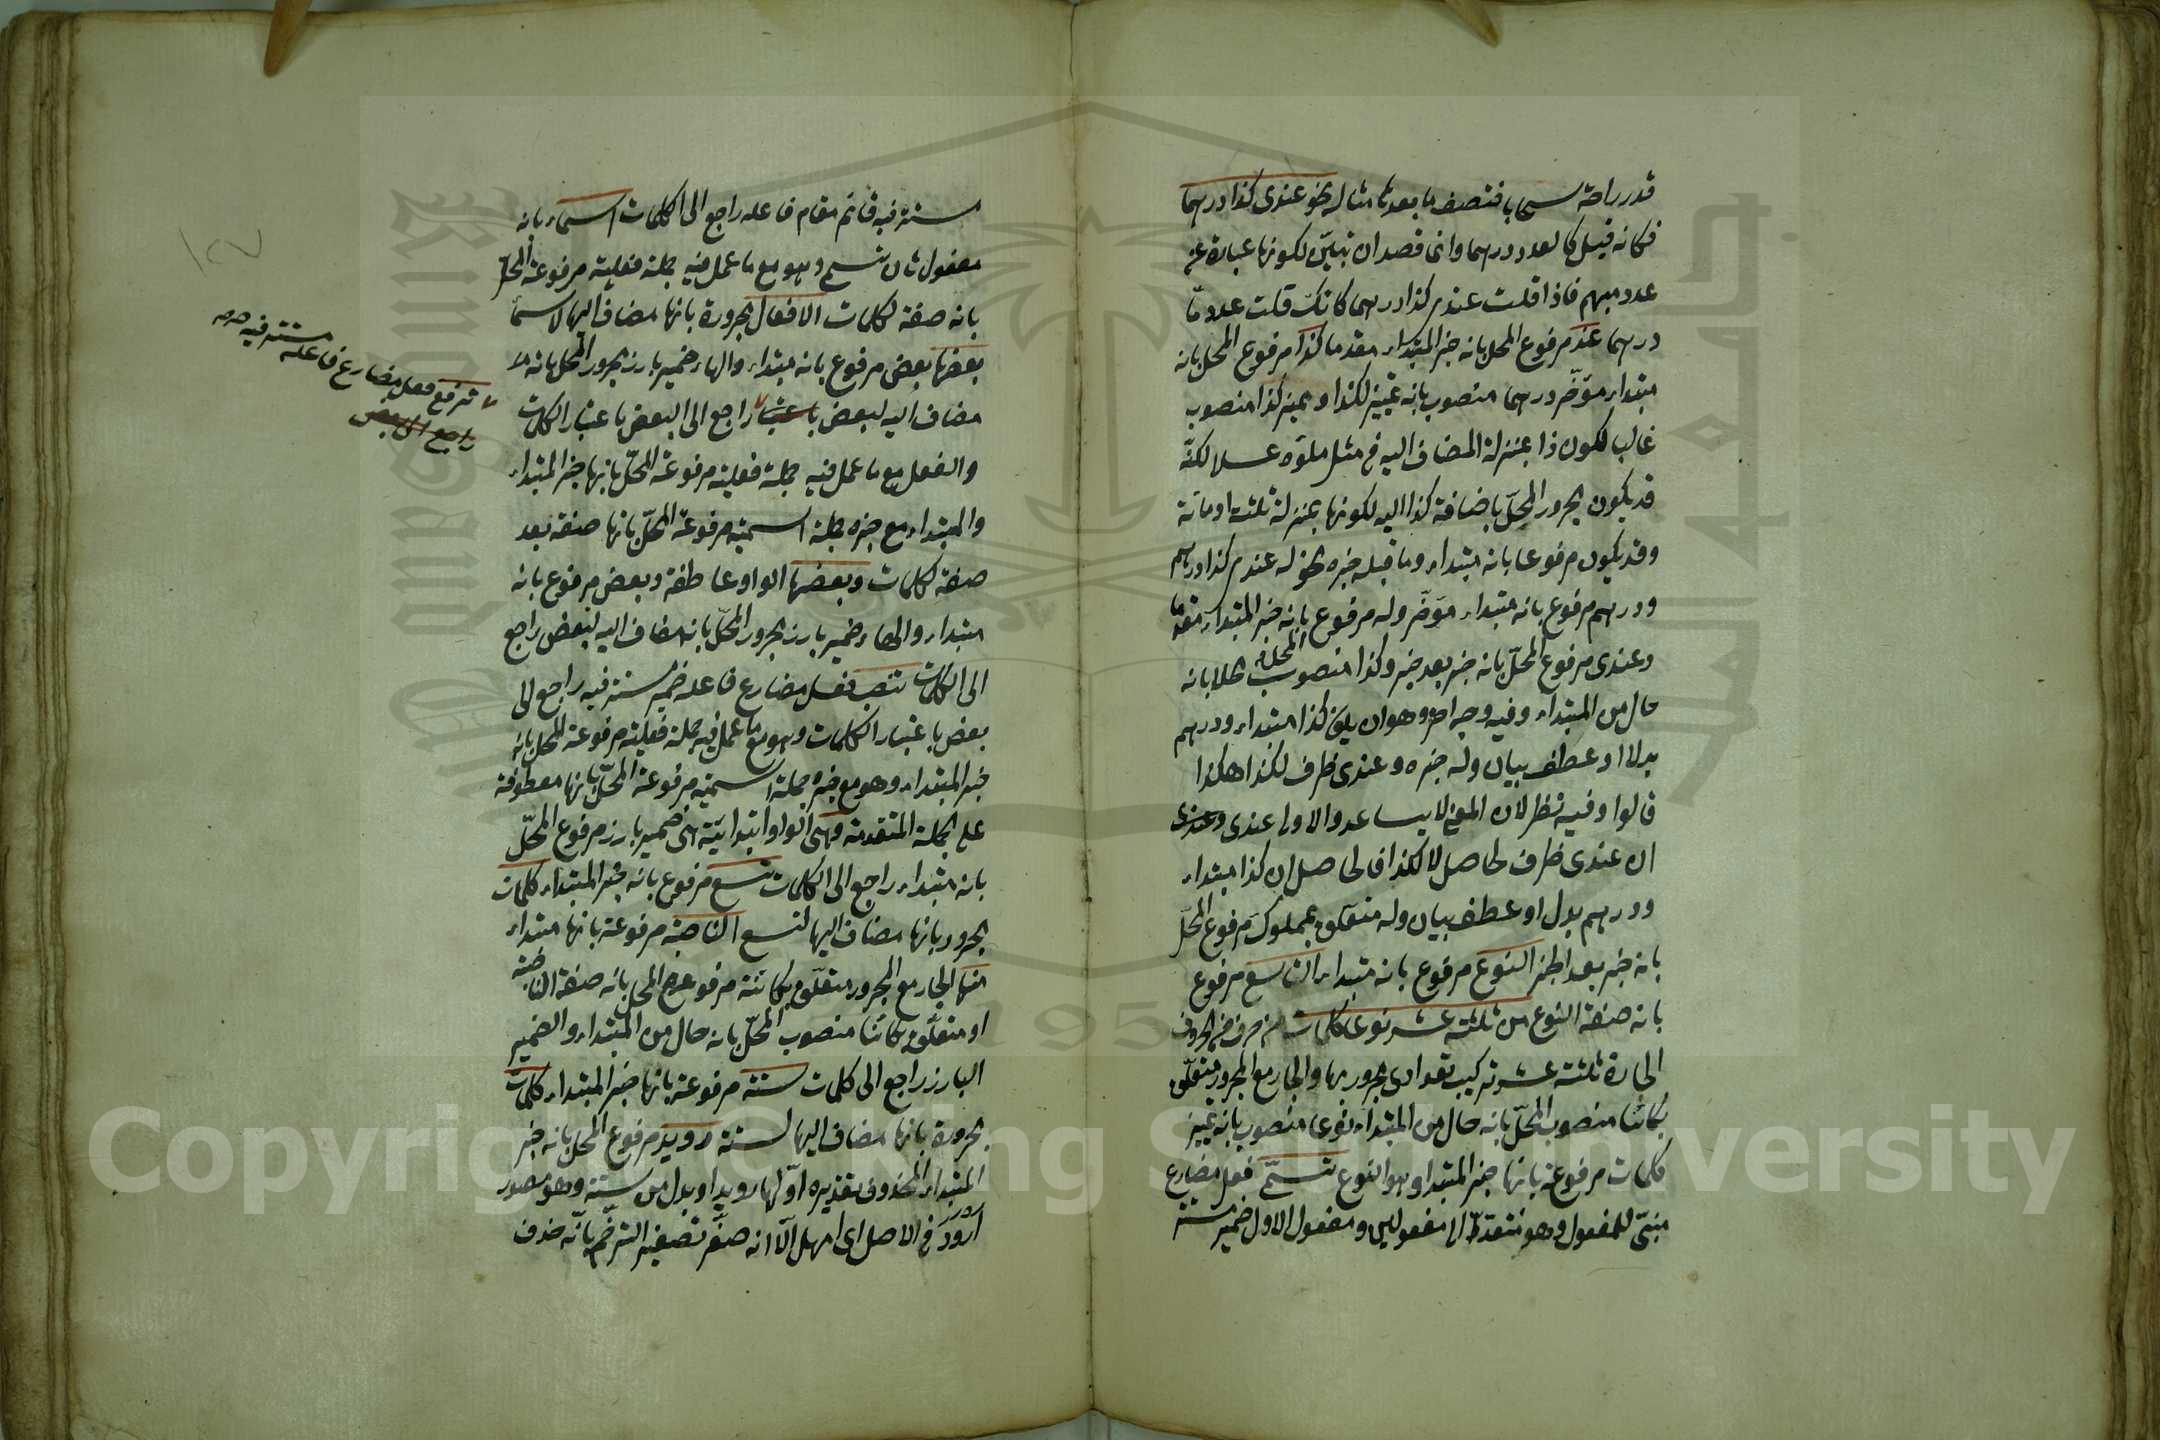 قدر راحة سحابا فتصف ما بعدها مثاله نحو عندى كذا درهما
فكانه قيل كالعدد درهما وانما قصد ان تبيّن لكونها عبارة عن
عدد مبهم فاذا قلت عندى كذا درهما كانك قلت عددًا ما
درهما عند مرفوع المحل بانه خبر المبتداء مقدما كذا مرفوع المحل بانه
مبتداء مؤخّر درهما منصوب بانه تمييز لكذا ومميز كذا منصوب
غالب لكون ذا بمنزلة المضاف اليه فى مثل ملؤه عسلا لكنّه
قد يكون مجرور المحلّ باضافة كذا اليه لكونها بمنزلة ثلثة او مائة
وقد يكون مرفوعا بانه مبتداء وما قبله خبره نحو له عندى كذا درهم
ودرهم مرفوع بانه مبتداء مؤخّر وله مرفوع بانه خبر المبتداء مقدما
وعندى مرفوع المحلّ بانه خبر بعد خبر وكذا منصوب المحل بانه
حال من المبتداء وفيه وجه اخر وهو ان يكون كذا مبتداء ودرهم
بدلا او عطف بيان وله خبره وعندى ظرف لكذا هكذا
قالوا وفيه نظر لان المعنى لا يساعد والاولى عندى وعندى
ان عندى ظرف لحاصل لا لكذا فالحاصل ان كذا مبتداء
ودرهم بدل او عطف بيان وله متعلّق بمملوك مرفوع المحلّ
بانه خبر بعد الخبر النوع مرفوع بانه مبتداء التاسع مرفوع
بانه صفة النوع من ثلثة عشر نوعا كلمات من حرف من الحروف
الجارة ثلثة عشر تركيب تعدادى مجرور بها والجار مع المجرور متعلّق
بكائنا منصوب المحلّ بانه حال من المبتداء نوعا منصوب بانه تمييز
كلمات مرفوعة بانها خبر المبتداء وهو النوع تسمّى فعل مضارع
مبنىّ للمفعول وهو متعدّ الى مفعولين ومفعول الاول ضمير مستتر
مستتر فيه قائم مقام فاعله راجع الى الكلمات اسماء بانه
مفعول ثان تسمى وهو مع ما عمل فيه جملة فعلية مرفوعة المحلّ
بانه صفة لكلمات الافعال مجرورة بانها مضاف اليها لاسما
بعضها بعض مرفوع بانه مبتداء والهاء ضمير بارز مجرور المحل بانه
مضاف اليه لبعض باعتبار راجع الى البعض باعتبار الكلمات
والفعل مع ما عمل فيه جملة فعلية مرفوعة المحلّ بانها خبر المبتداء
والمبتداء مع خبره جملة اسمية مرفوعة المحلّ بانها صفة بعد
صفة لكلمات وبعضها الواو عاطفة وبعض مرفوع بانه
مبتداء والهاء ضمير بارز مجرور المحلّ بانه مضاف اليه لبعض راجع
الى الكلمات تنصب فعل مضارع فاعله ضمير مستتر فيه راجع الى
بعض باعتبار الكلمات وهو مع ما عمل فيه جملة فعلية مرفوعة المحل بانه
خبر المبتداء وهو مع خبره جملة اسمية مرفوعة المحلّ بانها معطوفة
على الجملة المتقدمة وهى الواو ابتدائيّة هى ضمير بارز مرفوع المحلّ
بانه مبتداء راجع الى الكلمات تسع مرفوع بانه خبر المبتداء كلمات
مجرور بانها مضاف اليها لتسع الناصبة مرفوعة بانها مبتداء
منها الجار مع المجرور متعلّق بكائنة مرفوع المحل بانه صفة الناصبة
او متعلّق بكائنا منصوب المحلّ بانه حال من المبتداء والضمير
البارز راجع الى كلمات ستة مرفوعة بانها خبر المبتداء كلمات
مجرورة بانها مضاف اليها لستة رويد مرفوع المحل بانه خبر
المبتداء المحذوف تقديره اوّلها رويد او بدل من ستة وهو مصدر
ارْوَدَ فى الاصل اى امهل الّا انه صغّر تصغير الترخّم بانّه حذف
ترفع فعل مضارع فاعله مستتر فيه صح
راجع الى بعض
Copyright © King Saud University
1957